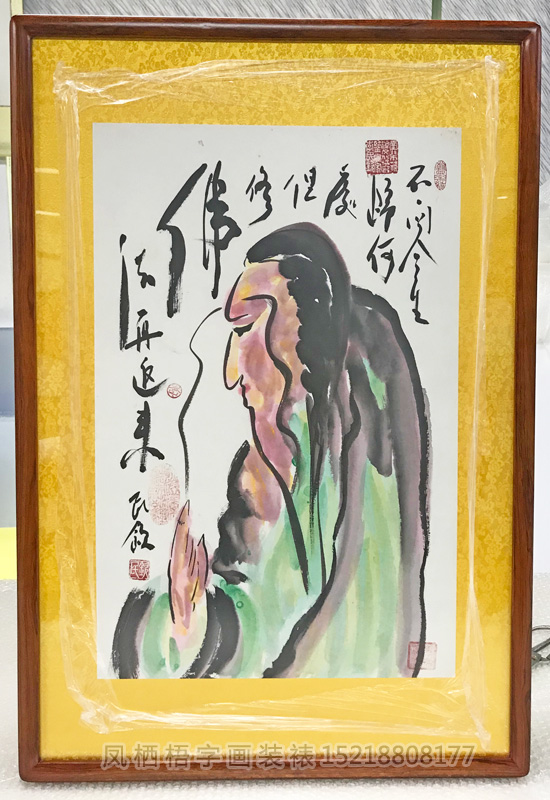 不问今生
歸何
處
但
修
佛
法再返来
凤栖梧字画装裱15218808177